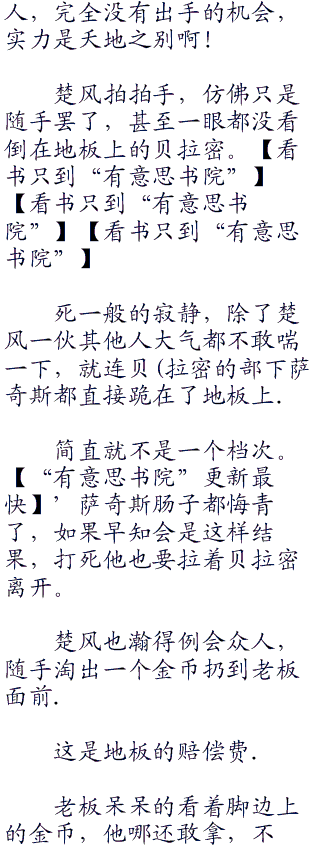 人，完全没有出手的机会，
实力是天地之别啊！
楚风拍拍手，仿佛只是
随手罢了，甚至一眼都没看
倒在地板上的贝拉密。【看
书只到“有意思书院”】
【看书只到“有意思书
院”】【看书只到“有意思
书院”】
死一般的寂静，除了楚
风一伙其他人大气都不敢喘
一下，就连贝(拉密的部下萨
奇斯都直接跪在了地板上.
简直就不是一个档次。
【“有意思书院”更新最
快】’萨奇斯肠子都悔青
了，如果早知会是这样结
果，打死他也要拉着贝拉密
离开。
楚风也瀚得例会众人，
随手淘出一个金币扔到老板
面前.
这是地板的赔偿费.
老板呆呆的看着脚边上
的金币，他哪还敢拿，不